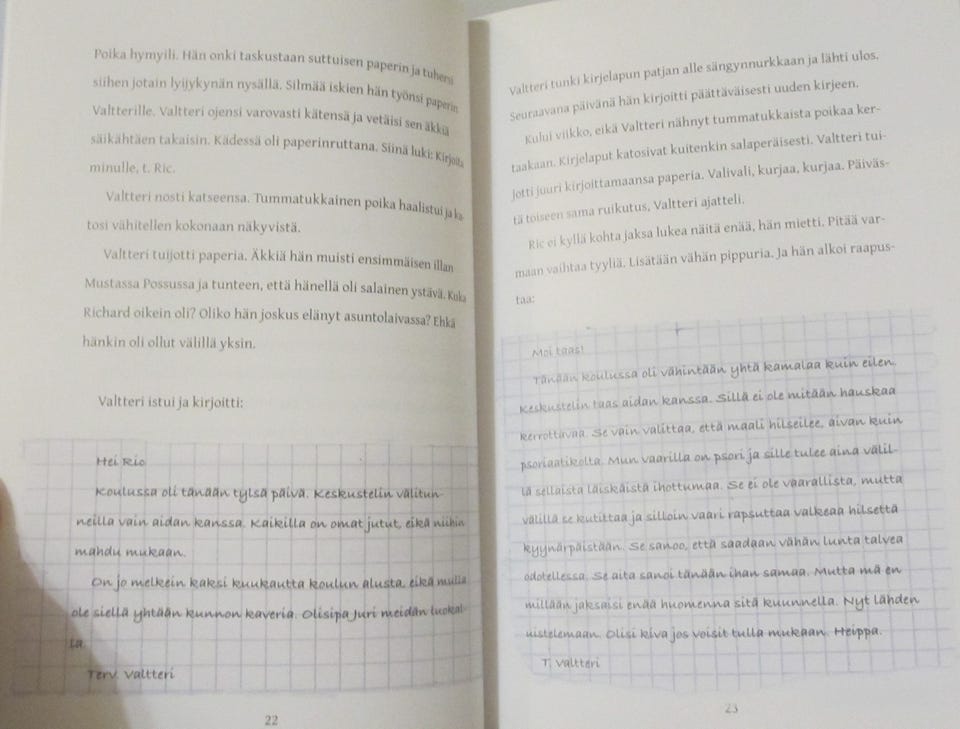 Poika hymyili. Hän onki taskustaan suttuisen paperin ja tuhersi
siihen jotain lyijykynän nysällä. Silmää iskien hän työnsi paperin
Valtterille. Valtteri ojensi varovasti kätensä ja vetäisi sen äkkiä
säikähtäen takaisin. Kädessä oli paperinruttana. Siinä luki: Kirjoita
minulle, t. Ric.
Valtteri nosti katseensa. Tummatukkainen poika haalistui ja ka-
tosi vähitellen kokonaan näkyvistä.
Valtteri tuijotti paperia. Äkkiä hän muisti ensimmäisen illan
Mustassa Possussa ja tunteen, että hänellä oli salainen ystävä. Kuka
Richard oikein oli? Oliko hän joskus elänyt asuntolaivassa? Ehkä
hänkin oli ollut välillä yksin.
Valtteri istui ja kirjoitti:
Hei Ric
Koulussa oli tänään tylsä päivä. Keskustelin välitun-
neilla vain aidan kanssa. Kaikilla on omat jutut, eikä niihin
mahdu mukaan.
On jo melkein kaksi kuukautta koulun alusta, eikä mulla
ole siellä yhtään kunnon kaveria. Olisipa Juri meidän luokal-
la.
Terv. Valtteri
22
Valtteri tunki kirjelapun patjan alle sängynnurkkaan ja lähti ulos.
Seuraavana päivänä hän kirjoitti päättäväisesti uuden kirjeen.
Kului viikko, eikä Valtteri nähnyt tummatukkaista poikaa ker-
taakaan. Kirjelaput katosivat kuitenkin salaperäisesti. Valtteri tui-
jotti juuri kirjoittamaansa paperia. Valivali, kurjaa, kurjaa. Päiväs-
tä toiseen sama ruikutus, Valtteri ajatteli.
Ric ei kyllä kohta jaksa lukea näitä enää, hän mietti. Pitää var-
maan vaihtaa tyyliä. Lisätään vähän pippuria. Ja hän alkoi raapus-
taa:
Moi taas!
Tänään koulussa oli vähintään yhtä kamalaa kuin eilen.
Keskustelin taas aidan kanssa. Sillä ei ole mitään hauskaa
kerrottavaa. Se vain valittaa, että maali hilseilee, aivan kuin
psoriaatikolta. Mun vaarilla on psori ja sille tulee aina välil-
lä sellaista läiskäistä ihottumaa. Se ei ole vaarallista, mutta
välillä se kutittaa ja silloin vaari rapsuttaa valkeaa hilsettä
kyynärpäistään. Se sanoo, että saadaan vähän lunta talvea
odotellessa. Se aita sanoi tänään ihan samaa. Mutta mä en
millään jaksaisi enää huomenna sitä kuunnella. Nyt lähden
uistelemaan. Olisi kiva jos voisit tulla mukaan. Heippa.
T. Valtteri
23